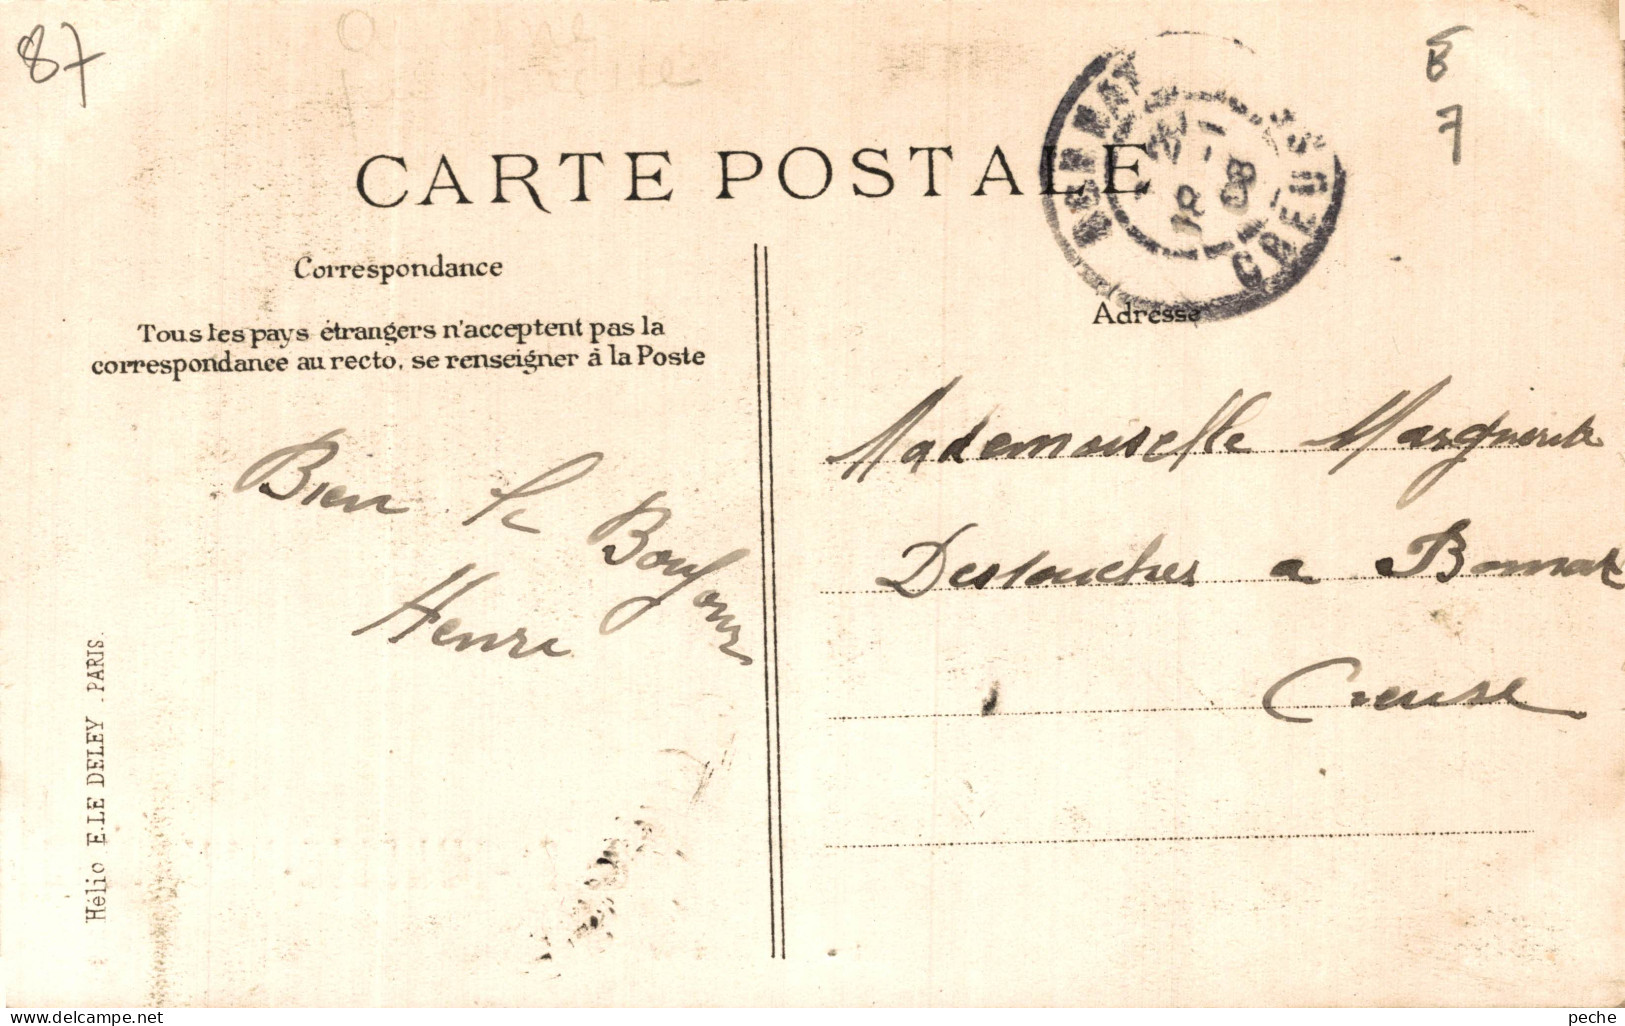 87
B
7
CARTE POSTALE
CREUSE
18
08
Correspondance
Adresse
Tous les pays étrangers n'acceptent pas la
correspondance au recto, se renseigner à la Poste
Bien le Bonjour
Henri
Mademoiselle Marguerite
Destouches a Bonnat
Creuse
Hélio E. LE DELEY . PARIS.
Delcampe.net
peche